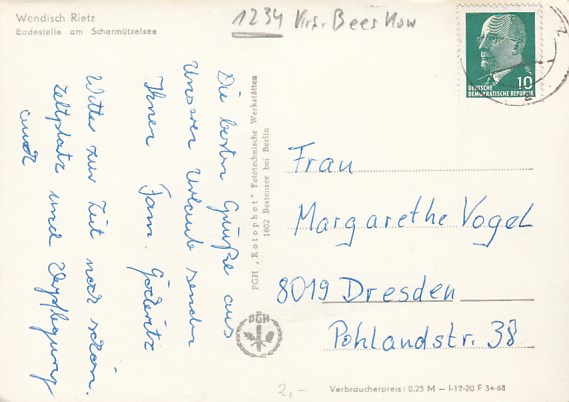 Wendisch Rietz
Badestelle am Scharmützelsee
1234 Krs. Beeskow
10
DEUTSCHE
DEMOKRATISCHE REPUBLIK
Die besten Grüße aus
Unserem Urlaub senden
Ihnen Fam. Göderitz
Wetter zur Zeit noch schön.
Zeltplatz und Verpflegung
auch
PGH „Rotophot" Fototechnische Werkstätten
1602 Bestensee bei Berlin
PGH
Frau
Margarethe Vogel
8019 Dresden
Pohlandstr. 38
2,-
Verbraucherpreis: 0,25 M – I-12-20 F 34-68